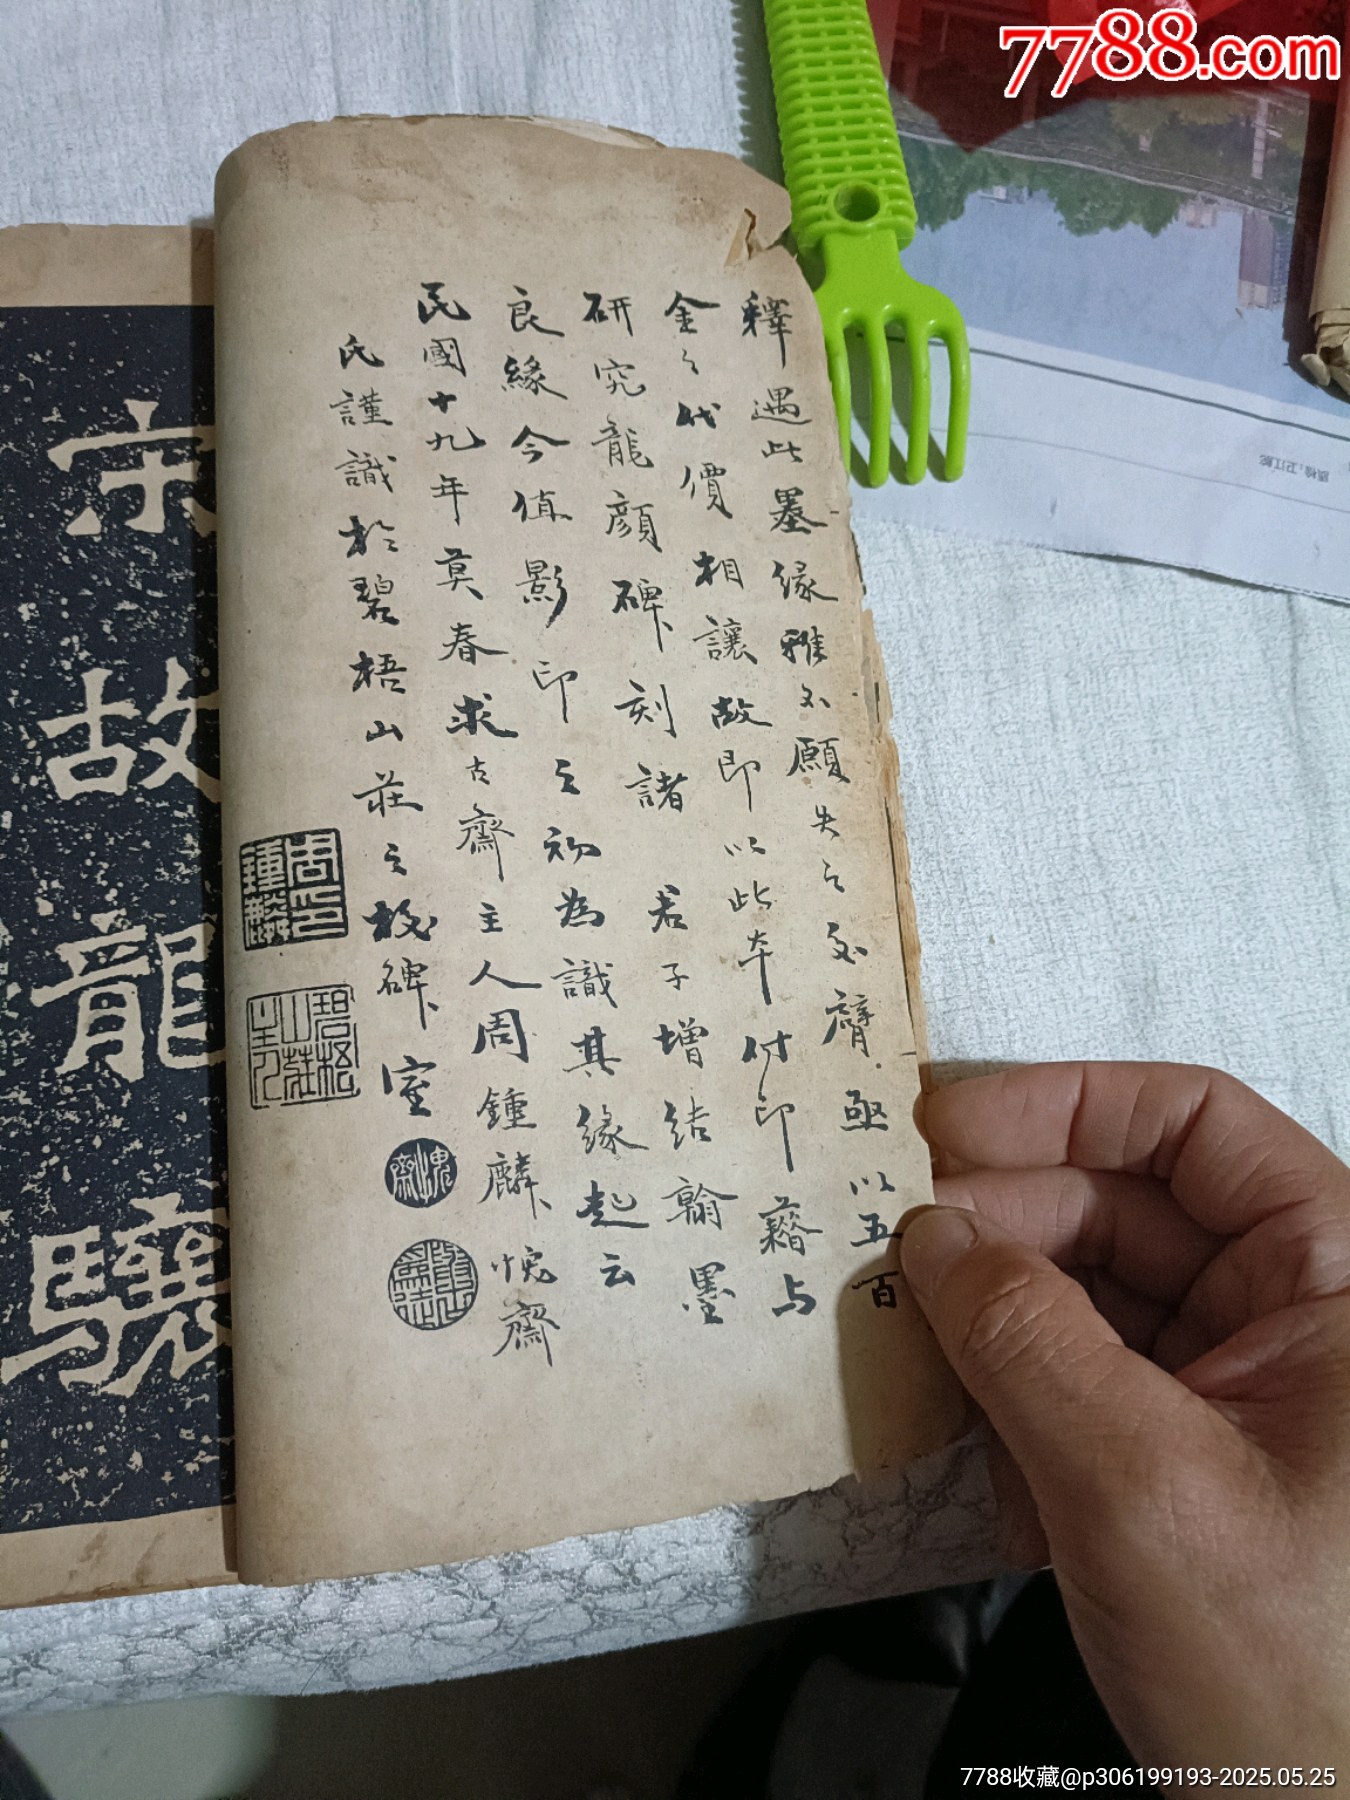 7788.com
釋遇此墨緣雅不願失之交臂亟以五百
金之代價相讓故即以此本付印藉与
研究龍顏碑刻諸君子增結翰墨
良緣今值影印之初為識其緣起云
民國十九年莫春求古齋主人周鍾麟愧齋
氏謹識於碧梧山莊之校碑室
周鍾麟印
愧齋
宋故龍驤
7788收藏@p306199193-2025.05.25